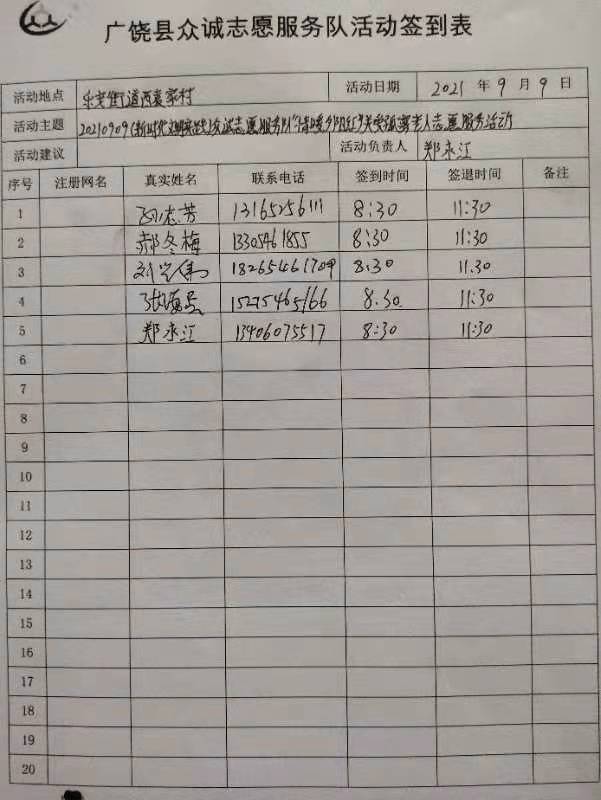 广饶县众诚志愿服务队活动签到表
活动地点 乐安街道西袁家村 活动日期 2021年9月9日
活动主题 20210909(新时代文明实践)众诚志愿服务队"情暖夕阳红"关爱孤寡老人志愿服务活动
活动建议 活动负责人 郑永江
序号 注册网名 真实姓名 联系电话 签到时间 签退时间 备注
1 志芳 13165256111 8:30 11:30
2 郝冬梅 13305461855 8:30 11:30
3 刘兴伟 18265461709 8:30 11.30
4 张 15275465166 8.30 11:30
5 郑永江 13406075517 8:30 11:30
6
7
8
9
10
11
12
13
14
15
16
17
18
19
20